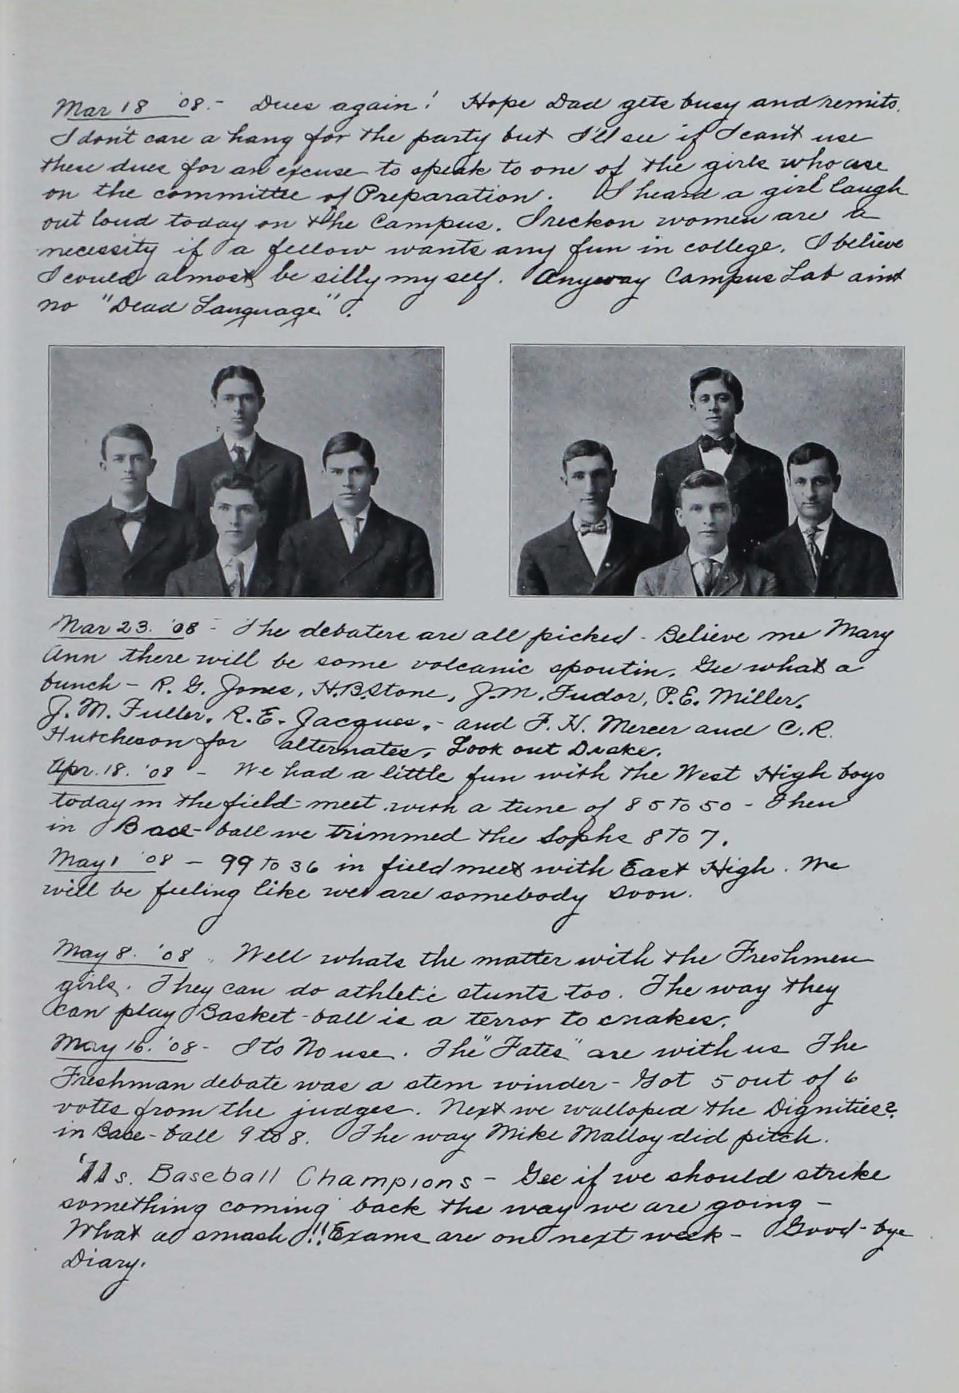 Mar 18 '08.- Dues again! Hope Dad gets busy and remits.
I don't care a hang for the party but I'll see if I can't use
these dues for an excuse to speak to one of the girls who are
on the committee of Preparation. I heard a girl laugh
out loud today on the Campus. I reckon women are a
necessity if a fellow wants any fun in college. I believe
I could almost be silly my self. Anyway Campus Lab aint
no "Dead Language".
Mar 23. '08 - The debaters are all picked - Believe me Mary
Ann there will be some volcanic spoutin. Gee what a
bunch - R. G. Jones, H.B. Stone, J.M. Tudor, P.E. Miller,
J. M. Fuller, R.E. Jacques, - and F. H. Mercer and C.R.
Hutcheson for alternates, Look out Drake.
Apr. 18. '08 - We had a little fun with the West High boys
today in the field meet with a tune of 85 to 50 - Then
in Base-ball we trimmed the Sophs 8 to 7.
May 1 '08 - 99 to 36 in field meet with East High. We
will be feeling like we are somebody soon.
May 8. '08. Well whats the matter with the Freshmen
girls. They can do athletic stunts too. The way they
can play Basket-ball is a terror to snakes.
May 16. '08 - It's No use. The "Fates" are with us The
Freshman debate was a stem winder - Got 5 out of 6
votes from the judges. Next we walloped the Dignities?
in Base-ball 9 to 8. The way Mike Malloy did pitch.
'11s. Baseball Champions - Gee if we should strike
something coming back the way we are going -
What a smash!! Exams are on next week - Good-bye
Diary.